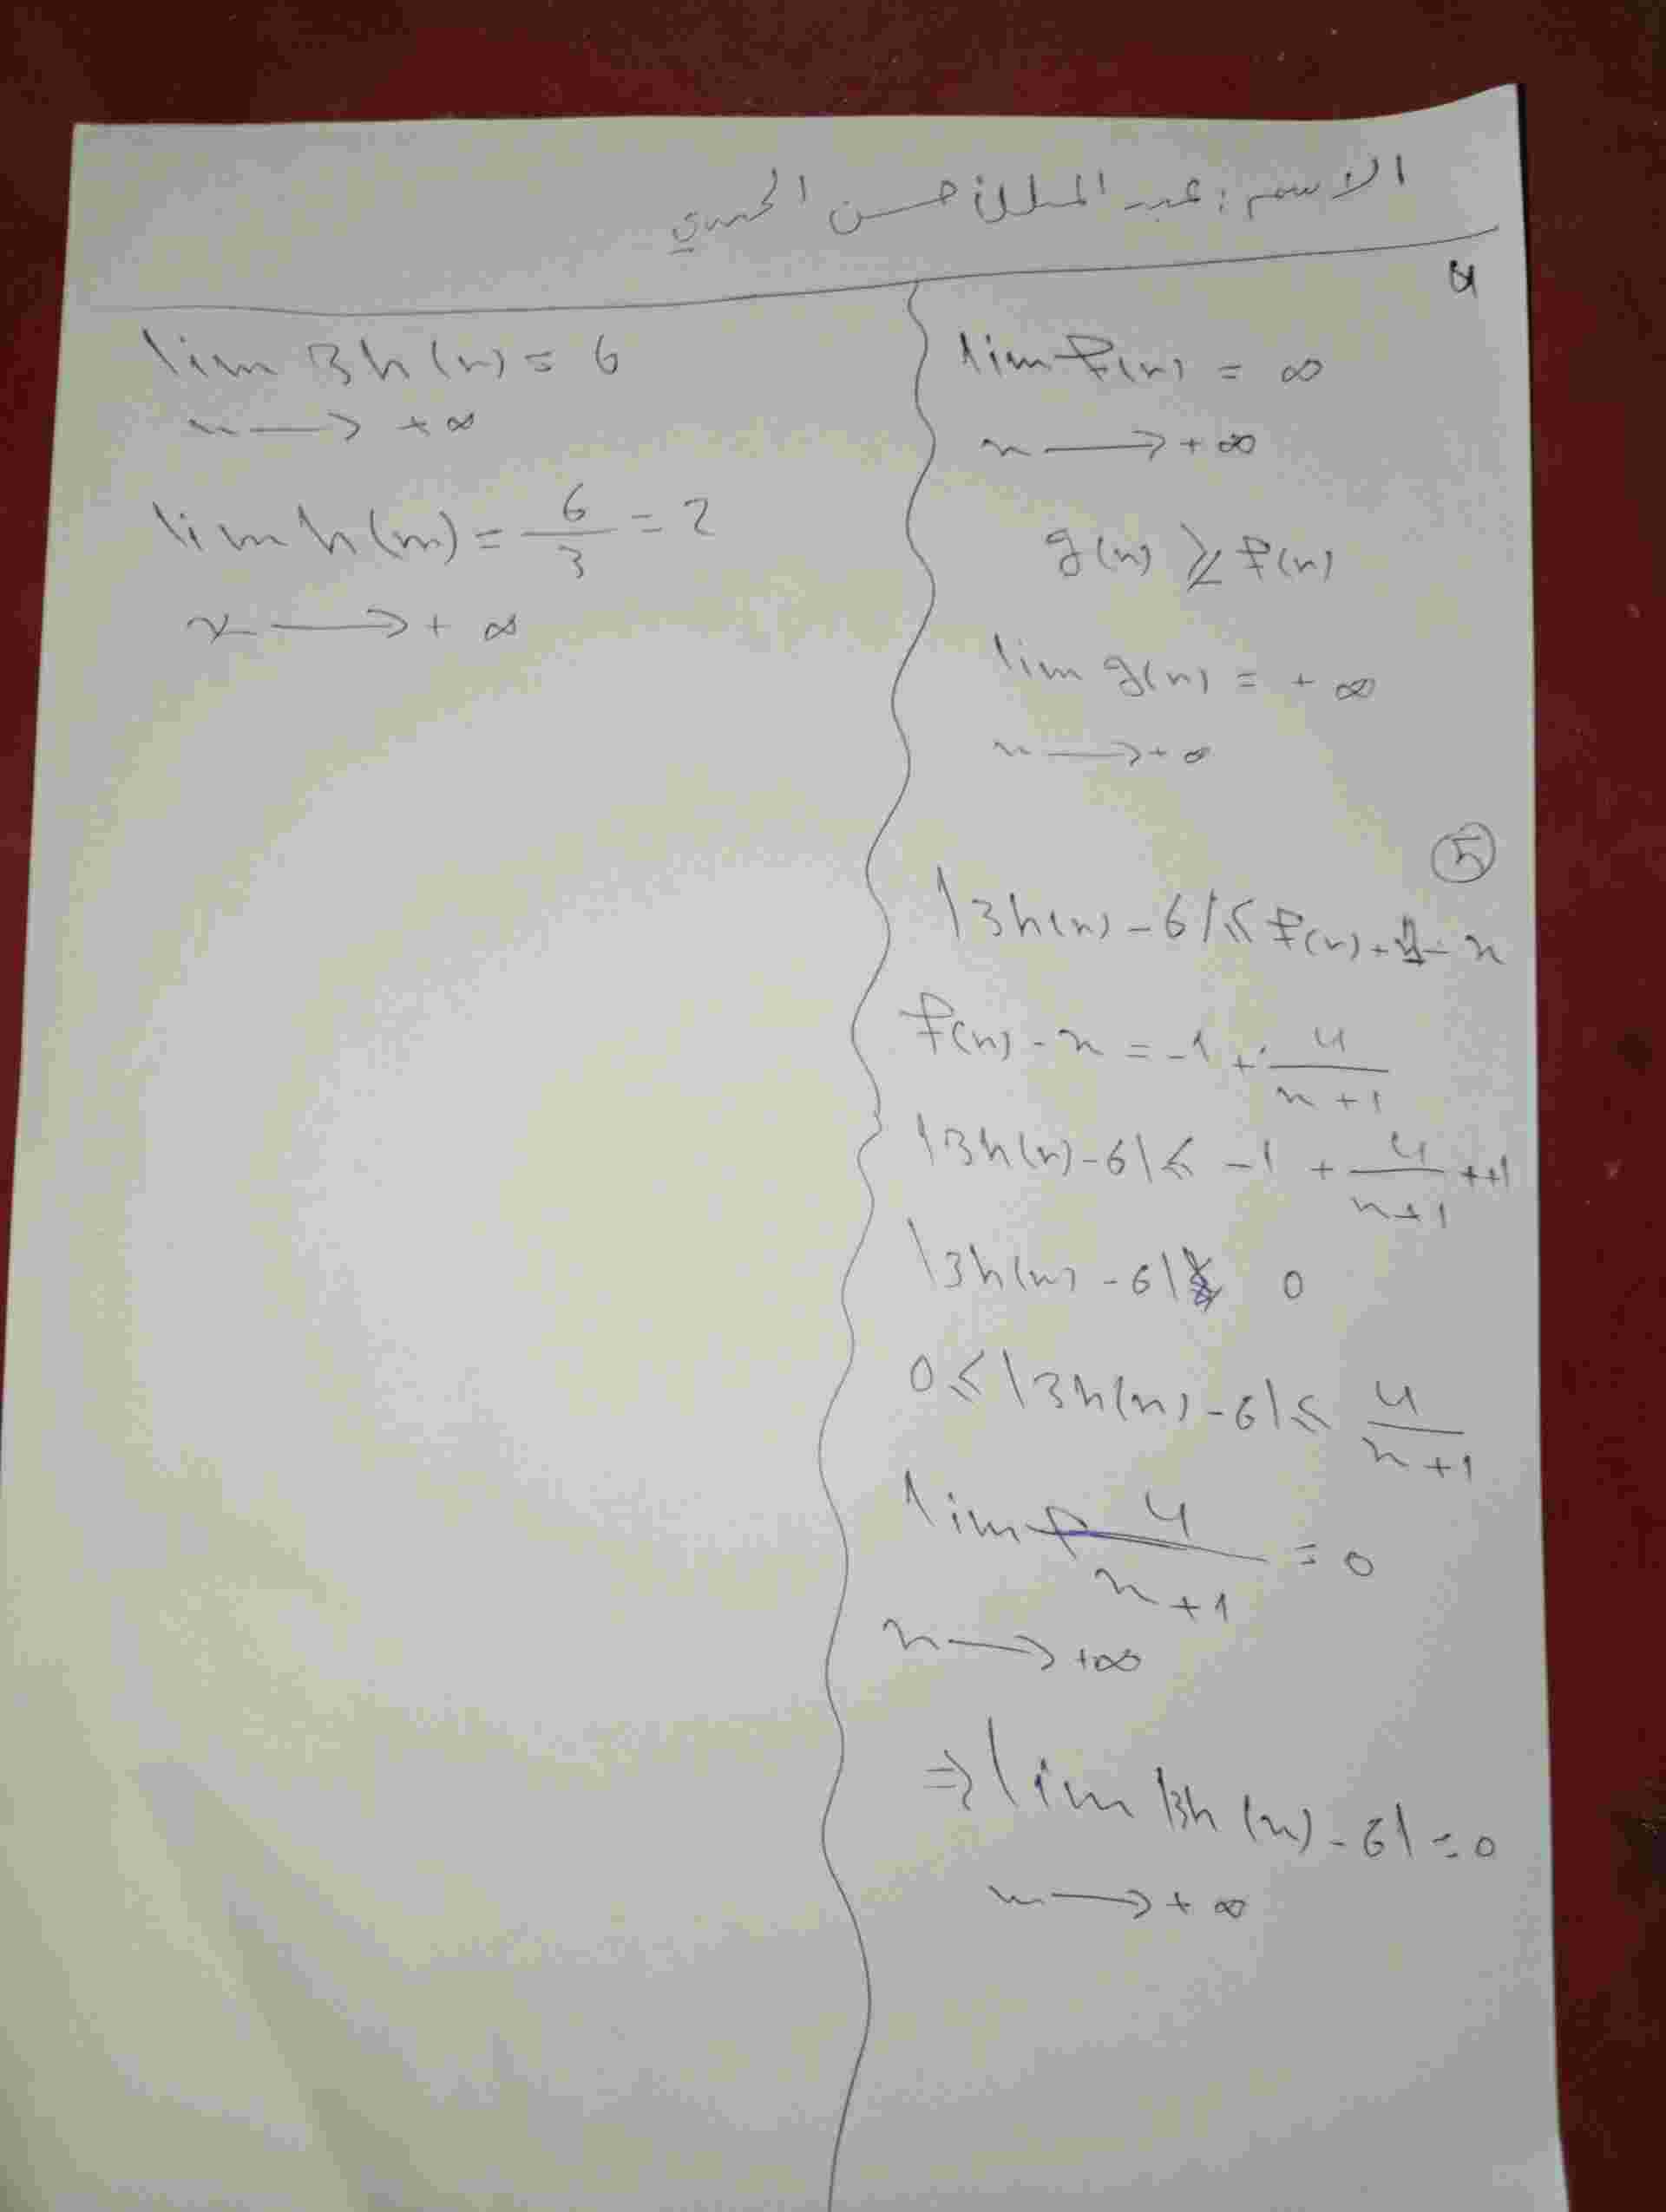 الاسم: عبد الملك حسن الحمدي
4
lim f(x) = ∞
x → +∞
g(x) ≥ f(x)
lim g(x) = +∞
x → +∞
5
|3h(x) - 6| ≤ f(x) + 1 - x
f(x) - x = -1 + 4/(x+1)
|3h(x) - 6| ≤ -1 + 4/(x+1) + +1
|3h(x) - 6| 0
0 ≤ |3h(x) - 6| ≤ 4/(x+1)
lim 4/(x+1) = 0
x → +∞
⇒ lim |3h(x) - 6| = 0
x → +∞
lim 3h(x) = 6
x → +∞
lim h(x) = 6/3 = 2
x → +∞